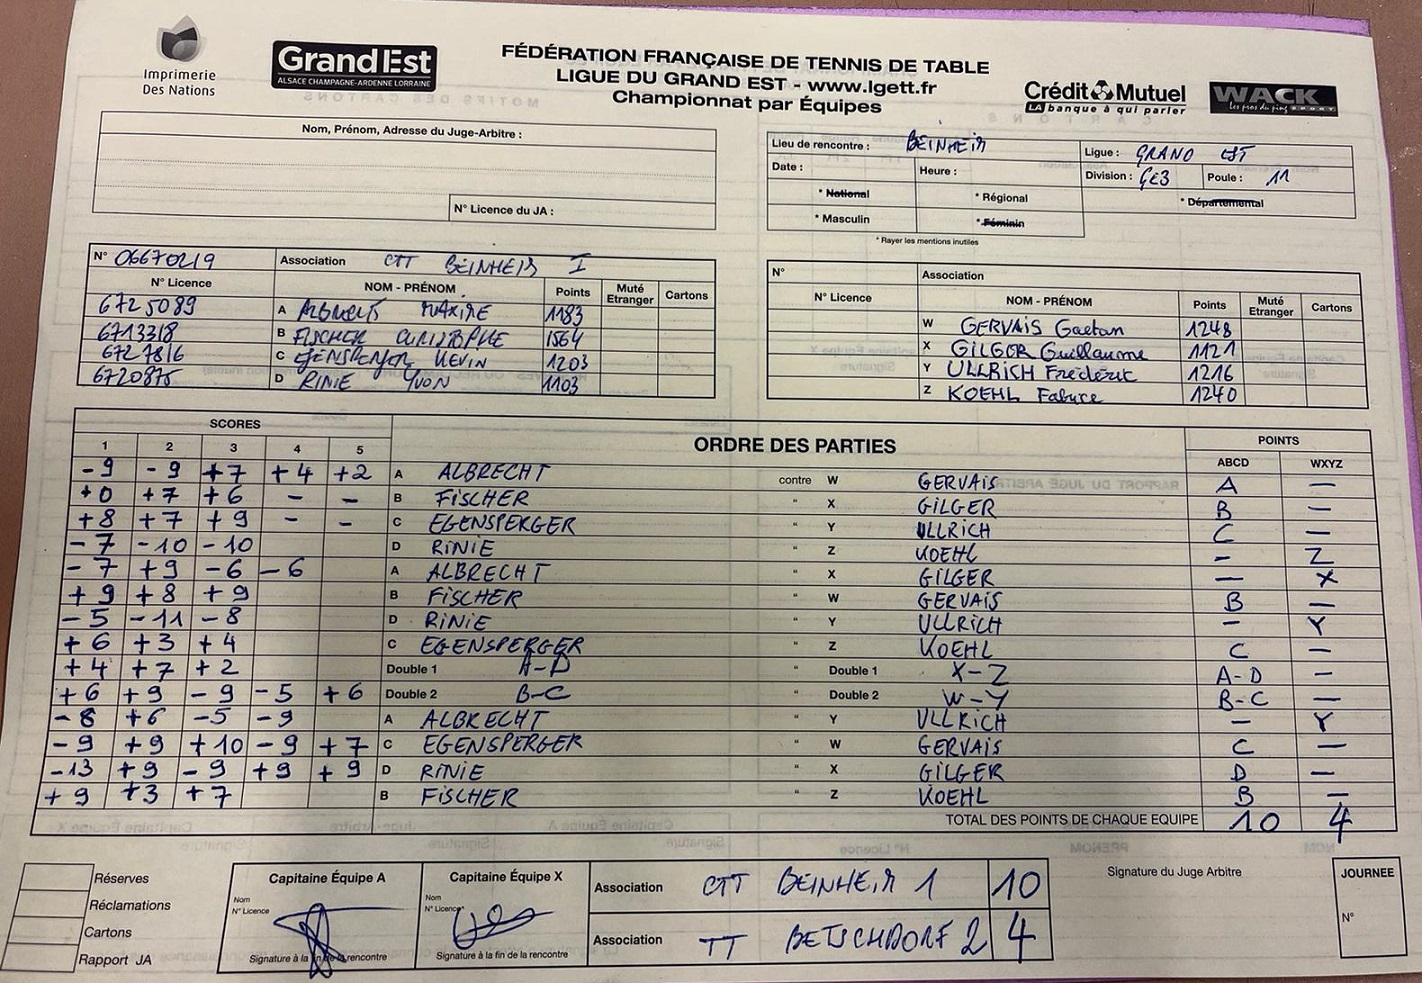 Imprimerie
Des Nations
Grand Est
ALSACE CHAMPAGNE-ARDENNE LORRAINE
FÉDÉRATION FRANÇAISE DE TENNIS DE TABLE
LIGUE DU GRAND EST - www.lgett.fr
Championnat par Équipes
Crédit Mutuel
LA banque à qui parler
WACK
Les pros du ping
Nom, Prénom, Adresse du Juge-Arbitre :
N° Licence du JA :
Lieu de rencontre : BEINHEIM
Ligue : GRAND EST
Date : Heure : Division : GE3 Poule : 11
* National * Régional * Départemental
* Masculin * Féminin
* Rayer les mentions inutiles
N° 06670219 Association CTT BEINHEIM I
N° Licence NOM - PRÉNOM Points Muté Etranger Cartons
6725089 A ALBRECHT MAXIME 1183
6713318 B FISCHER CHRISTOPHE 1564
6727816 C EGENSPERGER KEVIN 1203
6720875 D RINIE YVON 1103
N° Association
N° Licence NOM - PRÉNOM Points Muté Etranger Cartons
W GERVAIS Gaetan 1248
X GILGER Guillaume 1121
Y ULLRICH Frédéric 1216
Z KOEHL Fabrice 1240
SCORES ORDRE DES PARTIES POINTS
1 2 3 4 5 ABCD WXYZ
-9 -9 +7 +4 +2 A ALBRECHT contre W GERVAIS A —
+0 +7 +6 - - B FISCHER " X GILGER B —
+8 +7 +9 - - C EGENSPERGER " Y ULLRICH C —
-7 -10 -10 D RINIE " Z KOEHL - Z
-7 +9 -6 -6 A ALBRECHT " X GILGER — X
+9 +8 +9 B FISCHER " W GERVAIS B —
-5 -11 -8 D RINIE " Y ULLRICH - Y
+6 +3 +4 C EGENSPERGER " Z KOEHL C —
+4 +7 +2 Double 1 A-D " Double 1 X-Z A-D —
+6 +9 -9 -5 +6 Double 2 B-C " Double 2 W-Y B-C —
-8 +6 -5 -9 A ALBRECHT " Y ULLRICH — Y
-9 +9 +10 -9 +7 C EGENSPERGER " W GERVAIS C —
-13 +9 -9 +9 +9 D RINIE " X GILGER D —
+9 +3 +7 B FISCHER " Z KOEHL B —
TOTAL DES POINTS DE CHAQUE EQUIPE 10 4
Réserves
Réclamations
Cartons
Rapport JA
Capitaine Équipe A
Nom
N° Licence
Signature à la fin de la rencontre
Capitaine Équipe X
Nom
N° Licence
Signature à la fin de la rencontre
Association CTT BEINHEIM 1 10
Association TT BETSCHDORF 2 4
Signature du Juge Arbitre
JOURNEE
N°